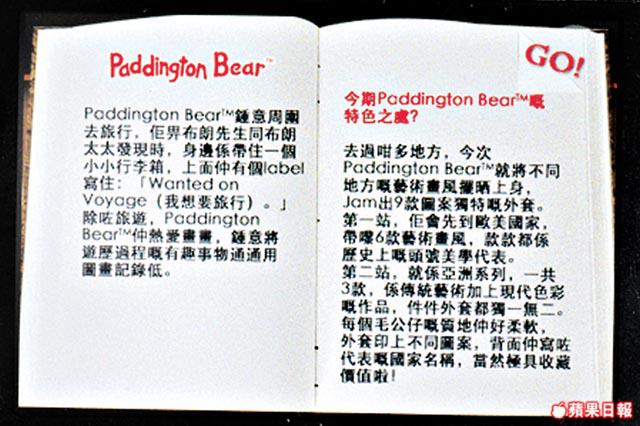 Paddington Bear™
Paddington Bear™鍾意周圍
去旅行，佢畀布朗先生同布朗
太太發現時，身邊係帶住一個
小小行李箱，上面仲有個label
寫住：「Wanted on
Voyage（我想要旅行）。」
除咗旅遊，Paddington
Bear™仲熱愛畫畫，鍾意將
遊歷過程嘅有趣事物通通用
圖畫記錄低。
GO!
今期Paddington Bear™嘅
特色之處？
去過咁多地方，今次
Paddington Bear™就將不同
地方嘅藝術畫風攞晒上身，
Jam出9款圖案獨特嘅外套。
第一站，佢會先到歐美國家，
帶嚟6款藝術畫風，款款都係
歷史上嘅頭號美學代表。
第二站，就係亞洲系列，一共
3款，係傳統藝術加上現代色彩
嘅作品，件件外套都獨一無二。
每個毛公仔嘅質地仲好柔軟，
外套印上不同圖案，背面仲寫咗
代表嘅國家名稱，當然極具收藏
價值啦！
蘋果日報